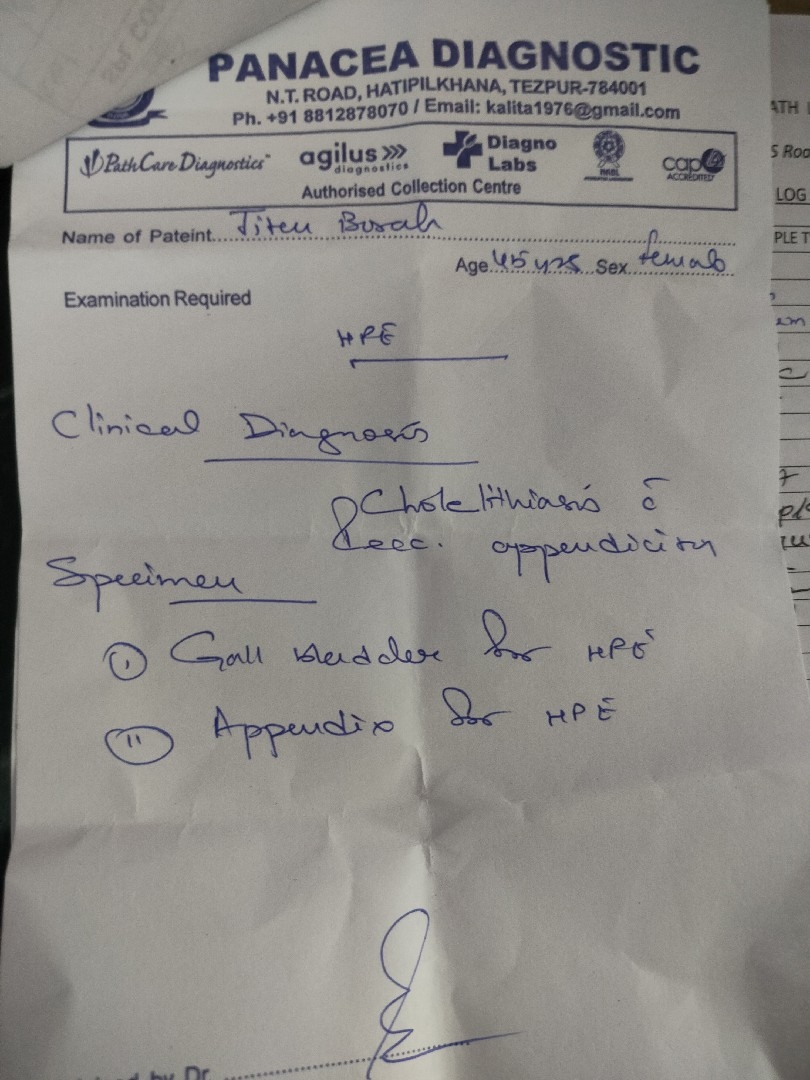 PANACEA DIAGNOSTIC
N.T. ROAD, HATIPILKHANA, TEZPUR-784001
Ph. +91 8812878070 / Email: kalita1976@gmail.com
PathCare Diagnostics
agilus diagnostics
Diagno Labs
NABL
cap ACCREDITED
Authorised Collection Centre
Name of Pateint.. Jiten Borah
Age 45 yrs Sex female
Examination Required
HPE
Clinical Diagnosis
Cholelithiasis c̄
Recc. appendicitis
Specimen
(i) Gall bladder for HPE
(ii) Appendix for HPE
by Dr.
ATH
LOG
PLE T